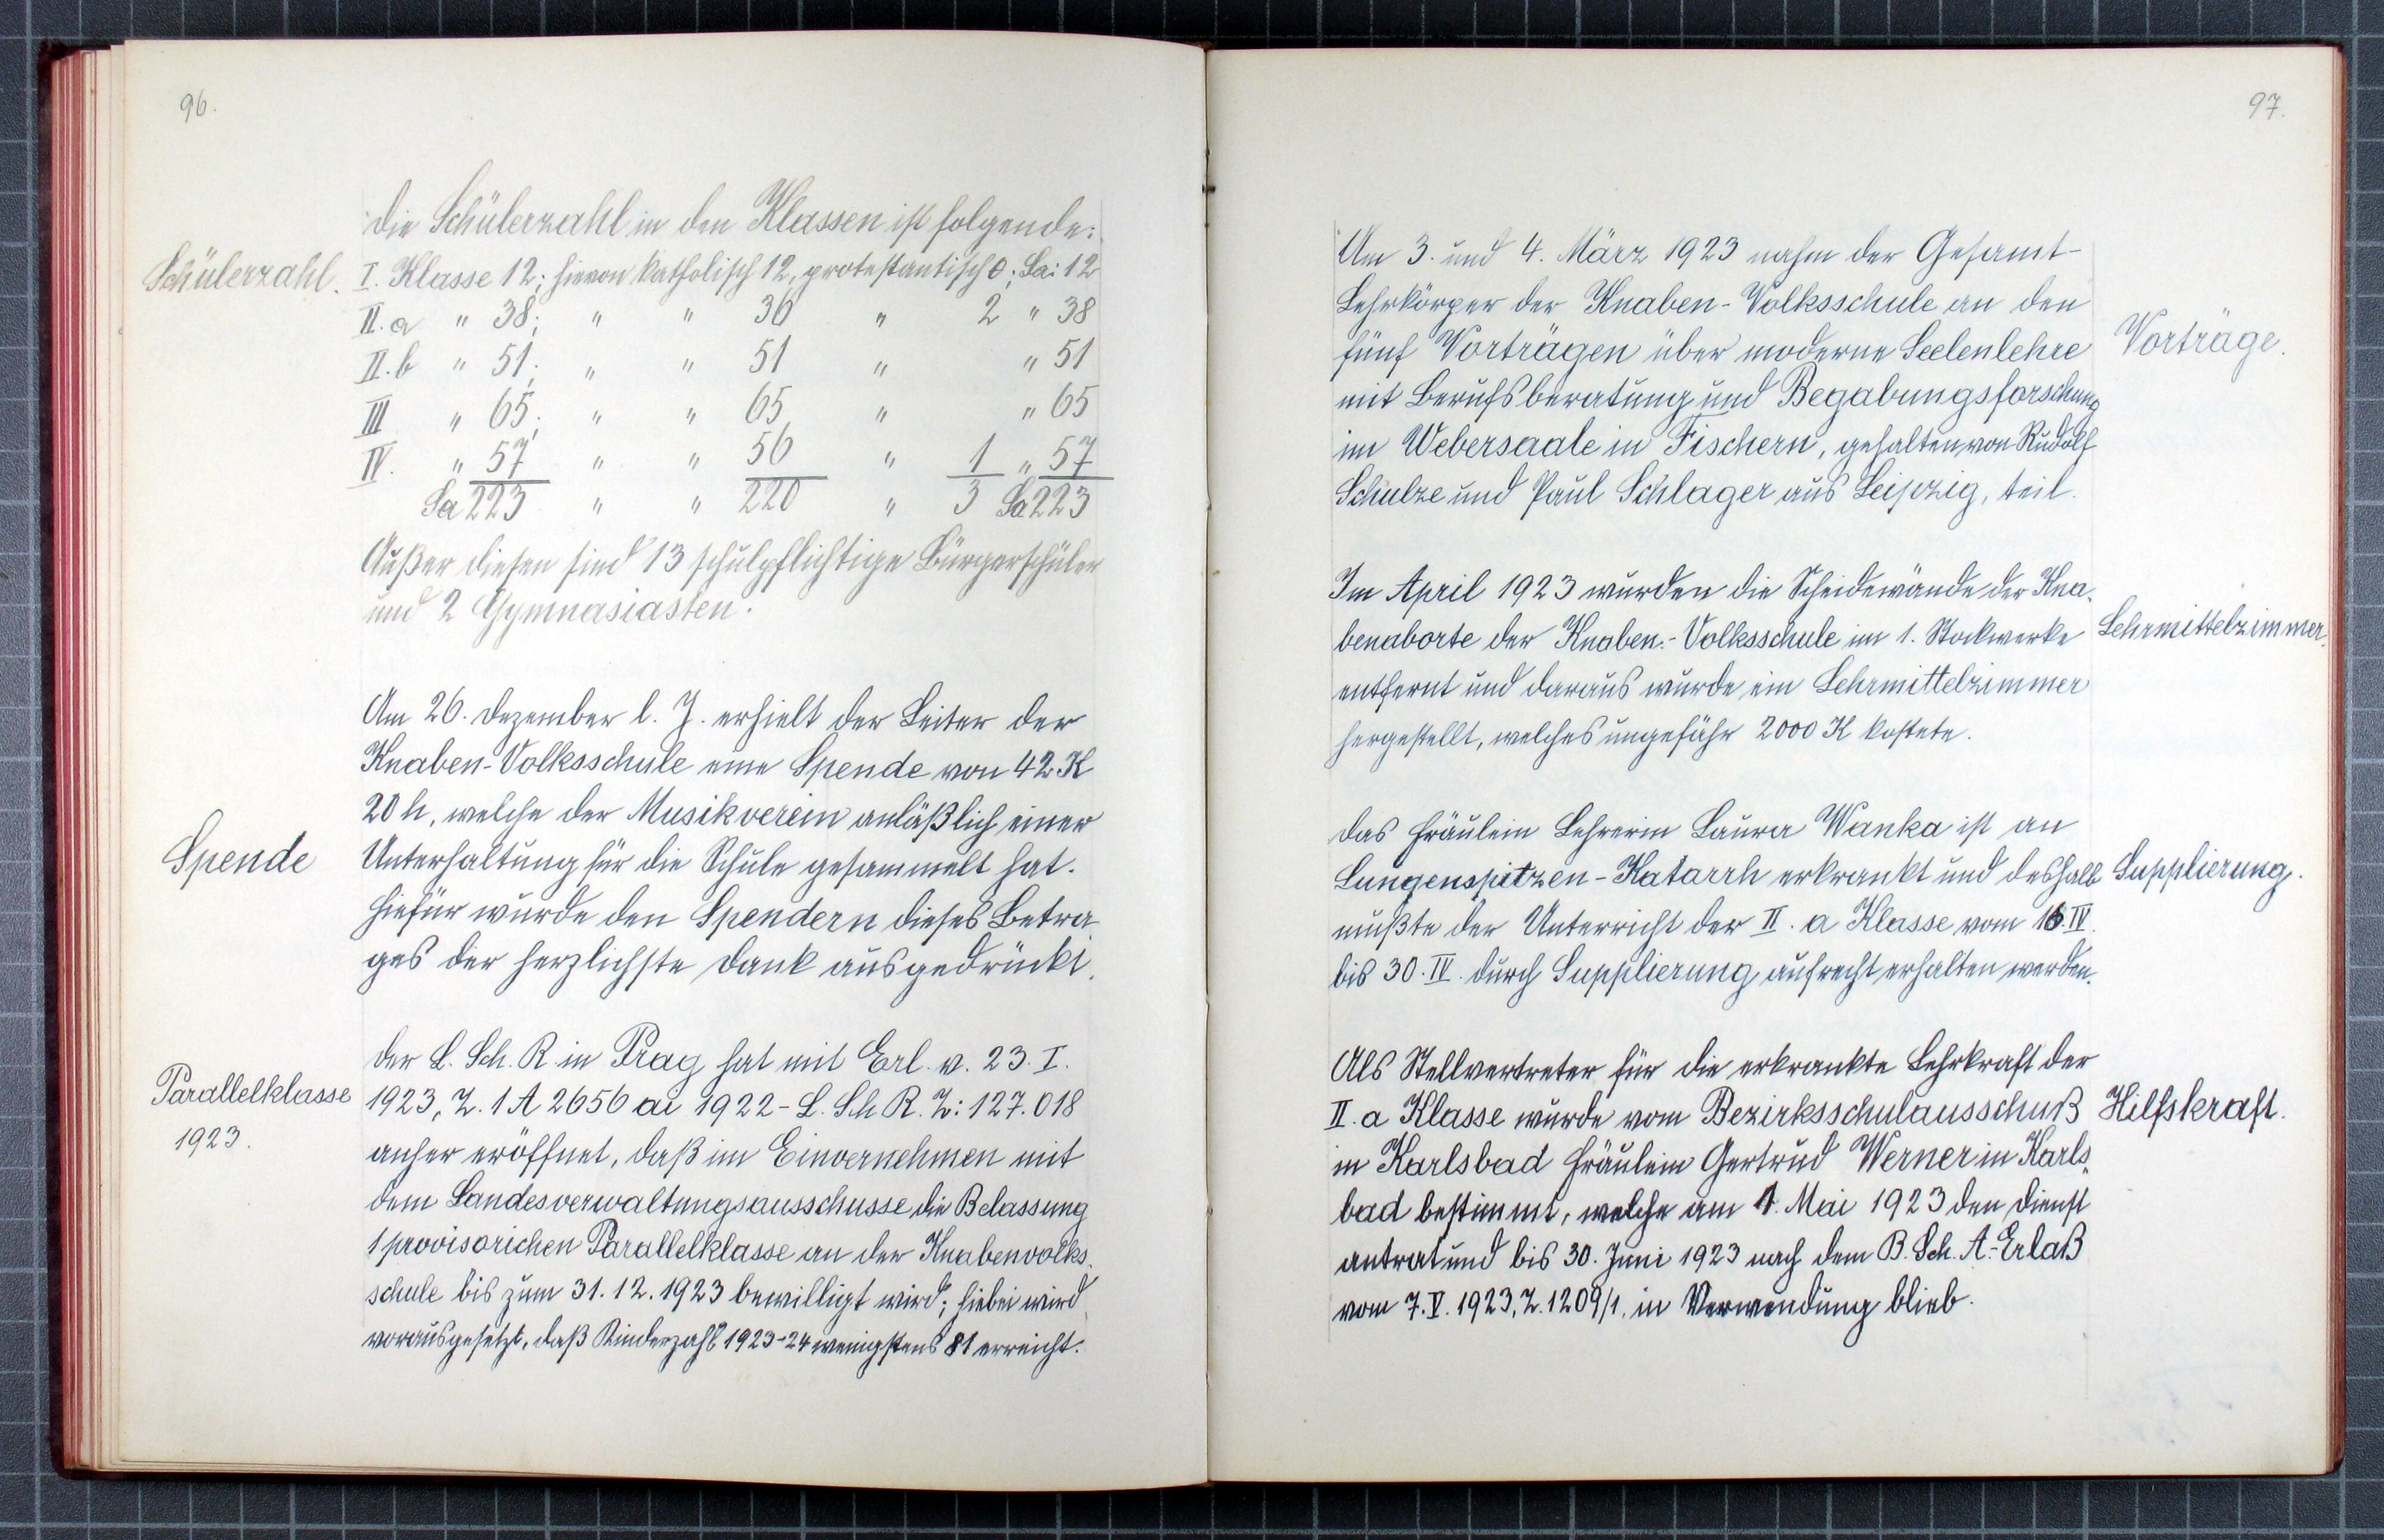 96.
Die Schülerzahl in den Klassen ist folgende:
Schülerzahl.
I. Klasse 12; hievon katholisch 12, protestantisch 0; Sa: 12
II. a " 38; " " 36 " 2 " 38
II. b " 51; " " 51 " " 51
III " 65; " " 65 " " 65
IV. " 57 " " 56 " 1 " 57
Sa 223 " " 220 " 3 Sa 223
Außer diesen sind 13 schulpflichtige Bürgerschüler
und 2 Gymnasiasten.
Am 26. Dezember l. J. erhielt der Leiter der
Knaben-Volksschule eine Spende von 42 K
20 h, welche der Musikverein anläßlich einer
Spende
Unterhaltung für die Schule gesammelt hat.
Hiefür wurde den Spendern dieses Betra-
ges der herzlichste Dank ausgedrückt.
Der L. Sch. R. in Prag hat mit Erl. v. 23. I.
Parallelklasse
1923.
1923, Z. 1 A 2656 ai 1922 - L. Sch R. Z: 127.018
anher eröffnet, daß im Einvernehmen mit
dem Landesverwaltungsausschusse die Belassung
1 provisorichen Parallelklasse an der Knabenvolks-
schule bis zum 31. 12. 1923 bewilligt wird; hiebei wird
vorausgesetzt, daß Kinderzahl 1923-24 wenigstens 81 erreicht.
97.
Am 3. und 4. März 1923 nahm der Gesamt-
Lehrkörper der Knaben-Volksschule an den
fünf Vorträgen über moderne Seelenlehre
Vorträge.
mit Berufsberatung und Begabungsforschung
im Webersaale in Fischern, gehalten von Rudolf
Schulze und Paul Schlager aus Leipzig, teil.
Im April 1923 wurden die Scheidewände der Kna-
benaborte der Knaben-Volksschule im 1. Stockwerke
Lehrmittelzimmer.
entfernt und daraus wurde ein Lehrmittelzimmer
hergestellt, welches ungefähr 2000 K kostete.
Das Fräulein Lehrerin Laura Wanka ist an
Lungenspitzen-Katarrh erkrankt und deshalb
Supplierung.
mußte der Unterricht der II. a Klasse vom 16. IV.
bis 30. IV. durch Supplierung aufrecht erhalten werden.
Als Stellvertreter für die erkrankte Lehrkraft der
II. a Klasse wurde vom Bezirksschulausschuß
Hilfskraft.
in Karlsbad Fräulein Gertrud Werner in Karls-
bad bestimmt, welche am 1. Mai 1923 den Dienst
antrat und bis 30. Juni 1923 nach dem B. Sch. A.-Erlaß
vom 7. V. 1923, Z. 1209/1, in Verwendung blieb.